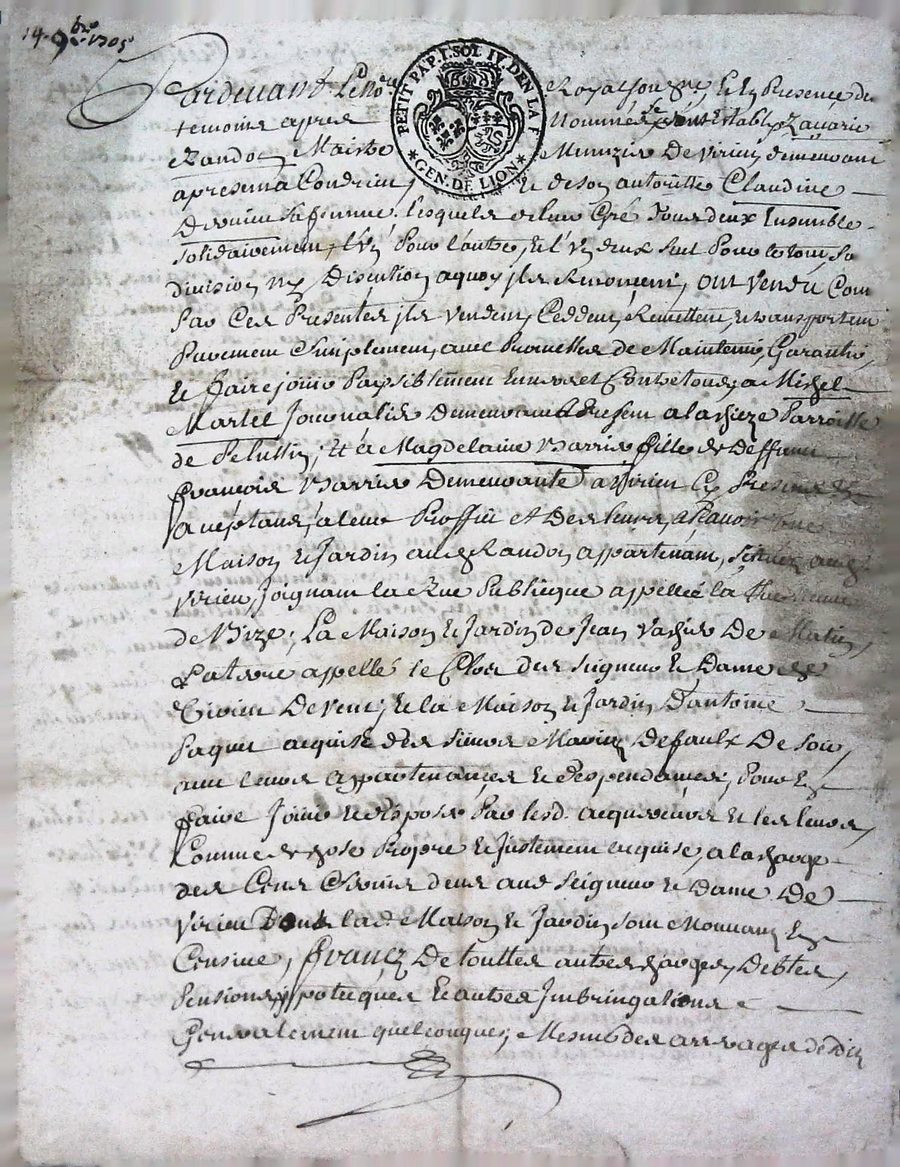 14. 9bre 1705
PETIT PAP. I. SOL IV. DEN LA F.
GEN. DE LION
Pardevant Le Nore Royal soubzne, Et En Presence des
temoins apres Nommés Establ Zacarie
Randon Maistre Menuzier De Virieu demeurant
apresent a Condrieu, Et de son autoritte Claudine
sa femme, lesquels de leur Gré Tous deux Ensemble
solidairement, l'Un Pour l'autre, et l'Un deux seul Pour le tout, sans
division ny Discution aquoy ils Renoncent, ont Vendu Com
Par Ces Presentes ils Vendent, Ceddent, Remettent, et transportent
Purement Simplement, avec Promesses de Maintenir, Garantir,
Et faire jouir Paysiblement Envers et Contre tous, a Michel
Martel Journalier Demeurant a la Parroisse
de Pelussin, Et a Magdelaine Barrier fille de Deffunt
François Barrier Demeurante a Virieu Cy Presens Et
acceptans, a leur Proffit et Des leurs, a sçavoir une
Maison Et Jardin aud Randon appartenant, Scituez aud
Virieu, Joignant la Rue Publicque appellée la Rue
de Bize, La Maison Et Jardin de Jean De Matin,
La terre appellé le Clos des Seigneur Et Dame de
Virieu De Vent, Et la Maison Et Jardin D'antoine
Paquet acquise des sieurs Default De Soir,
avec leurs appartenances Et Despendances, Pour En
faire Jouir et disposer Par lesd. acquereurs Et les leurs,
Comme de chose Propre Et Justement acquise, a la charge
des Cens Servis deus aux Seigneur Et Dame De
Virieu Dont lad. Maison Et Jardin sont Mouvans En
Censive, francz De touttes autres charges, Debtes,
Pensions, ypotecques Et autres Imbringations
Generalement quelconques, Mesmes des arrerages desdits